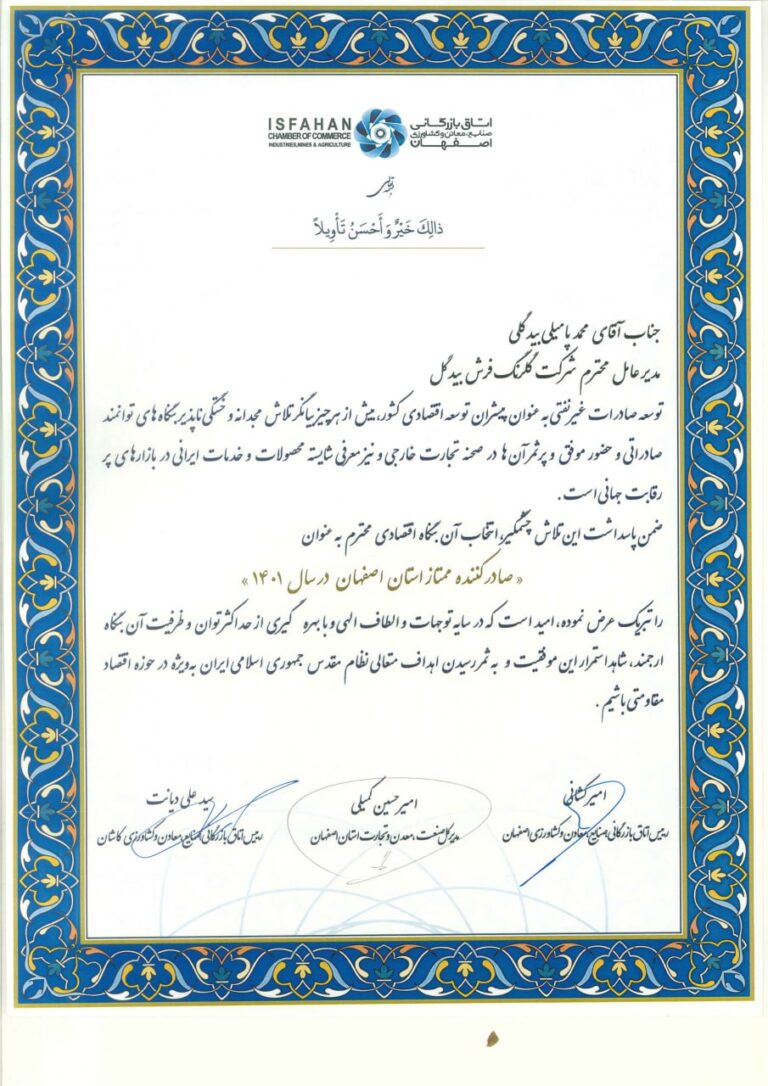 ISFAHAN
CHAMBER OF COMMERCE
INDUSTRIES, MINES & AGRICULTURE
اتاق بازرگانی
صنایع، معادن و کشاورزی
اصفهان
ذالِكَ خَيْرٌ وَ أَحْسَنُ تَأْوِيلاً
جناب آقای محمد پامیلی بیدگلی
مدیر عامل محترم شرکت گلرنگ فرش بیدگل
توسعه صادرات غیرنفتی به عنوان پیشران توسعه اقتصادی کشور، بیش از هر چیز بیانگر تلاش مجدانه و خستگی ناپذیر بنگاه های توانمند
صادراتی و حضور موفق و پرثمر آن ها در صحنه تجارت خارجی و نیز معرفی شایسته محصولات و خدمات ایرانی در بازارهای پر
رقابت جهانی است.
ضمن پاسداشت این تلاش چشمگیر، انتخاب آن بنگاه اقتصادی محترم به عنوان
« صادر کننده ممتاز استان اصفهان در سال ۱۴۰۱ »
را تبریک عرض نموده، امید است که در سایه توجهات و الطاف الهی و با بهره گیری از حداکثر توان و ظرفیت آن بنگاه
ارجمند، شاهد استمرار این موفقیت و به ثمر رسیدن اهداف متعالی نظام مقدس جمهوری اسلامی ایران به ویژه در حوزه اقتصاد
مقاومتی باشیم.
امیر کشانی
رییس اتاق بازرگانی، صنایع، معادن و کشاورزی اصفهان
امیرحسین کمیلی
مدیر کل صنعت، معدن و تجارت استان اصفهان
سید علی دیانت
رییس اتاق بازرگانی، صنایع، معادن و کشاورزی کاشان